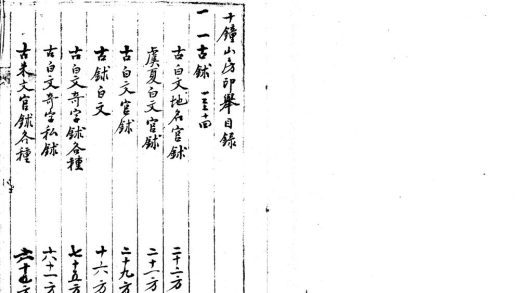 十鐘山房印舉目録
一 一古鉥 一至十四
古白文地名官鉥 二十二方
虞夏白文官鉥 二十一方
古白文官鉥 二十九方
古鉥白文 十六方
古白文奇字鉥各種 七十五方
古白文奇字私鉥 六十一方
古朱文官鉥各種 六十五方